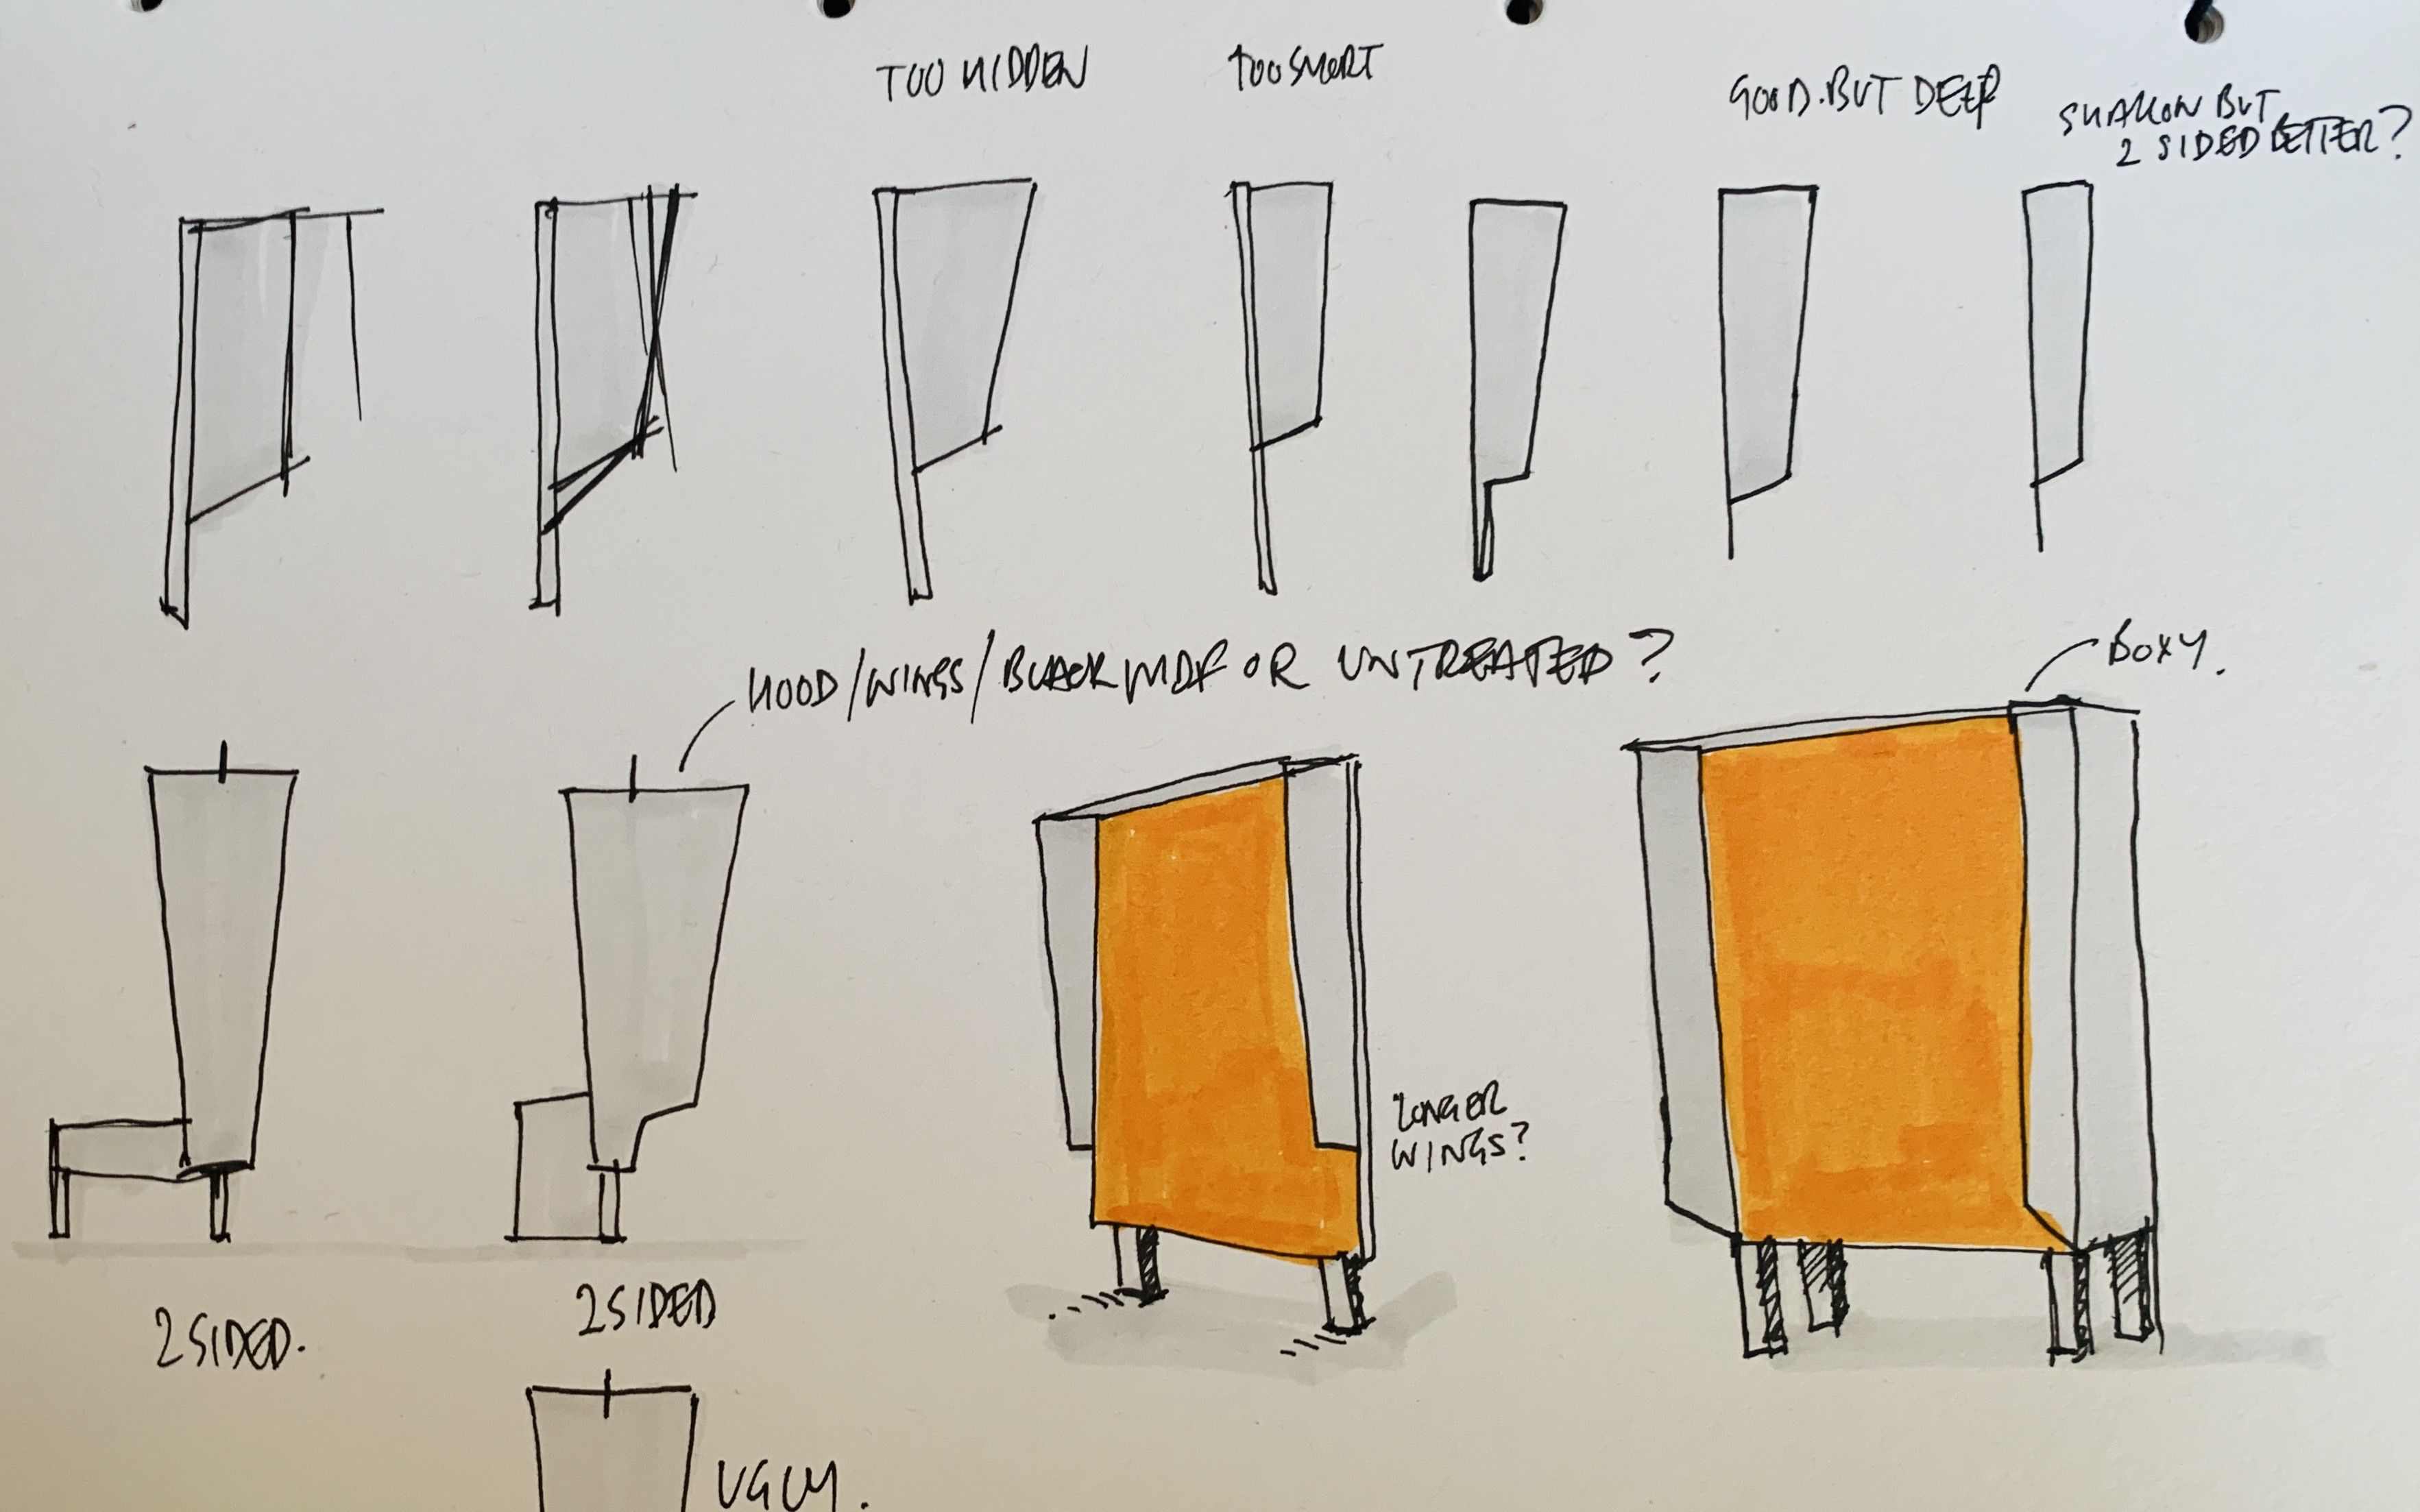 TOO HIDDEN
TOO SHORT
GOOD. BUT DEEP
SHALLOW BUT
2 SIDED BETTER?
HOOD/WINGS/BLACK MDF OR UNTREATED?
BOXY.
LONGER
WINGS?
2 SIDED.
2 SIDED
UGLY.